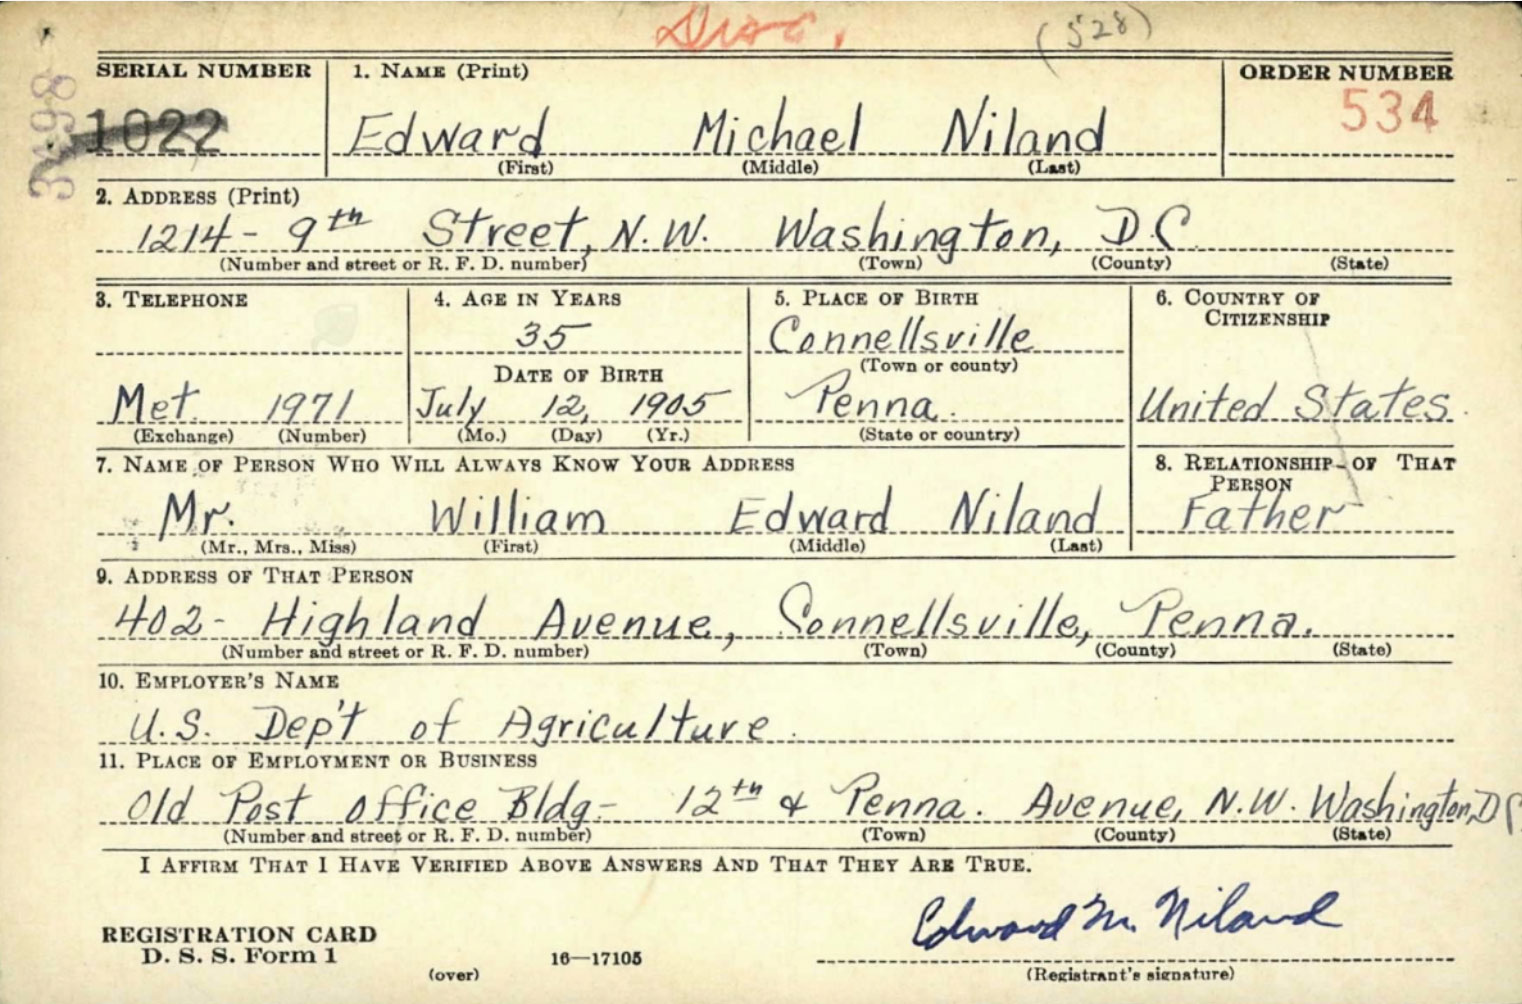 Disc.
(528)
SERIAL NUMBER
1. NAME (Print)
ORDER NUMBER
3498
1022
Edward Michael Niland
534
(First) (Middle) (Last)
2. ADDRESS (Print)
1214- 9th Street, N.W. Washington, D.C.
(Number and street or R. F. D. number) (Town) (County) (State)
3. TELEPHONE
4. AGE IN YEARS
5. PLACE OF BIRTH
6. COUNTRY OF CITIZENSHIP
35
Connellsville
(Town or county)
DATE OF BIRTH
Met. 1971
July 12, 1905
Penna.
United States.
(Exchange) (Number)
(Mo.) (Day) (Yr.)
(State or country)
7. NAME OF PERSON WHO WILL ALWAYS KNOW YOUR ADDRESS
8. RELATIONSHIP OF THAT PERSON
Mr. William Edward Niland
Father
(Mr., Mrs., Miss) (First) (Middle) (Last)
9. ADDRESS OF THAT PERSON
402- Highland Avenue, Connellsville, Penna.
(Number and street or R. F. D. number) (Town) (County) (State)
10. EMPLOYER'S NAME
U.S. Dep't of Agriculture.
11. PLACE OF EMPLOYMENT OR BUSINESS
Old Post Office Bldg- 12th & Penna. Avenue, N.W. Washington, DC
(Number and street or R. F. D. number) (Town) (County) (State)
I AFFIRM THAT I HAVE VERIFIED ABOVE ANSWERS AND THAT THEY ARE TRUE.
Edward M. Niland
REGISTRATION CARD
D. S. S. Form 1
(over)
16—17105
(Registrant's signature)